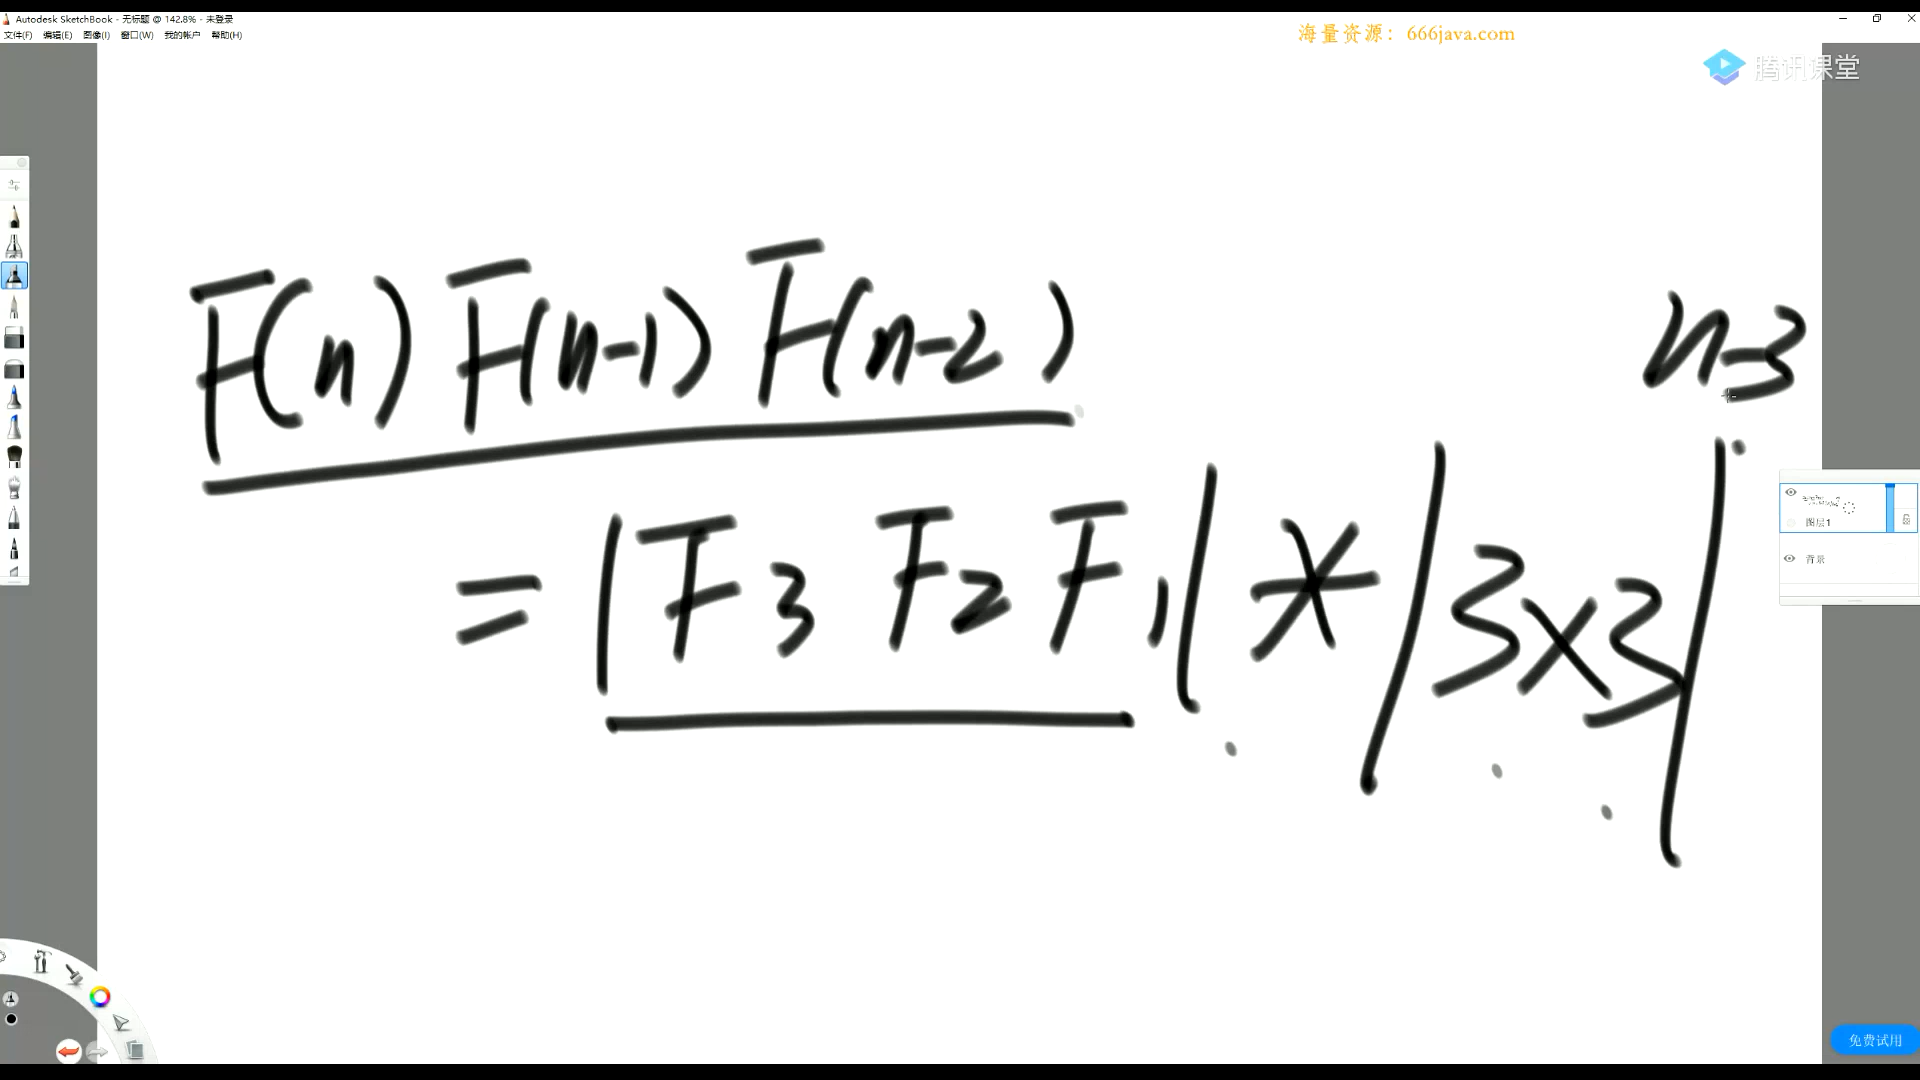 Autodesk SketchBook - 无标题 @ 142.8% - 未登录
文件(F) 编辑(E) 图像(I) 窗口(W) 我的帐户 帮助(H)
海量资源：666java.com
腾讯课堂
F(n) F(n-1) F(n-2)
n-3
= |F3 F2 F1| * |3×3|
图层1
背景
免费试用